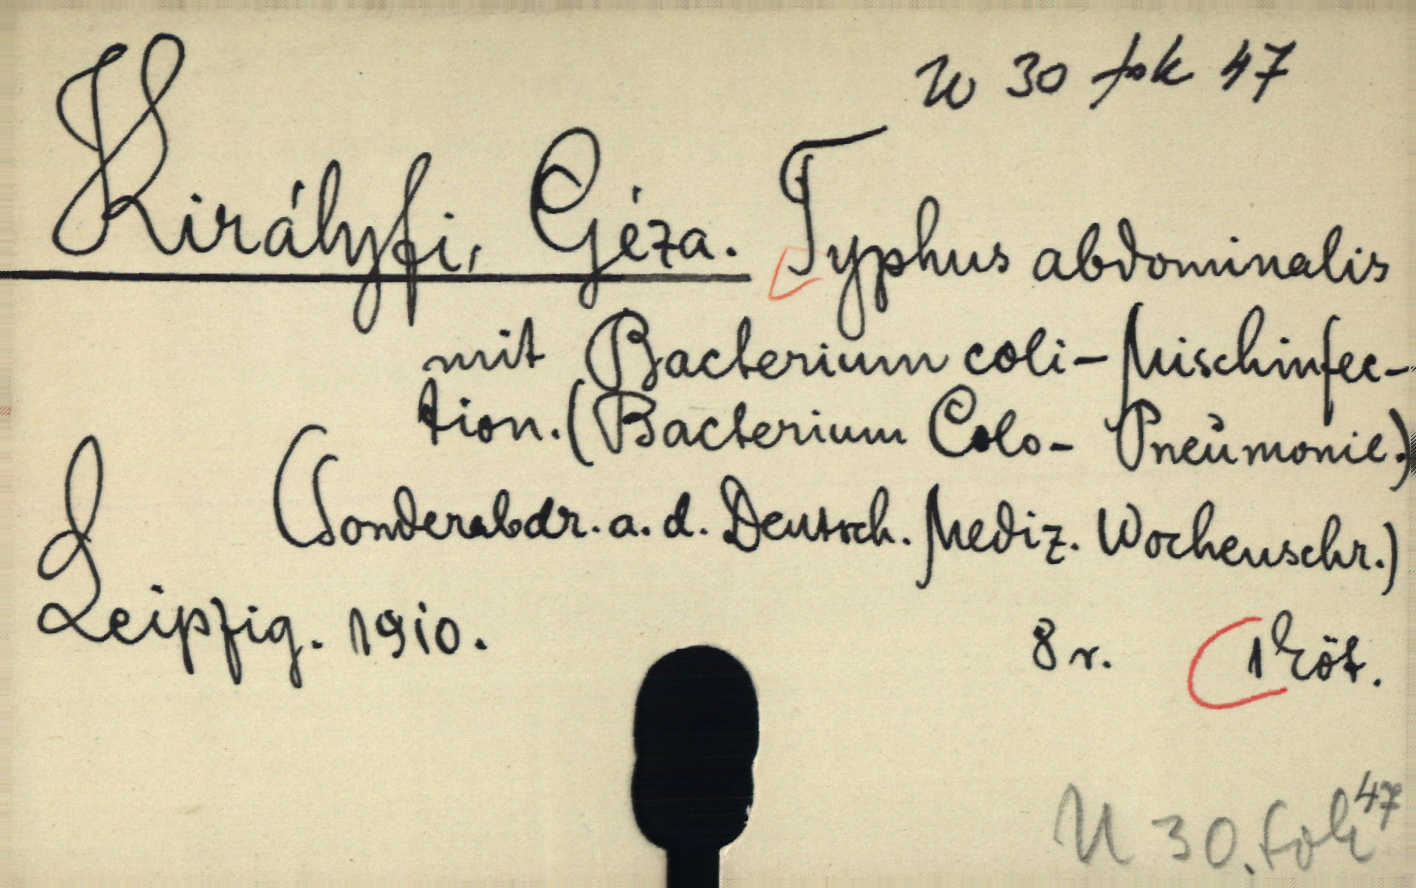 U 30 fok 47
Királyfi, Géza. Typhus abdominalis
mit Bacterium coli-Mischinfec-
tion. (Bacterium Colo-Pneŭmonie.)
(Sonderabdr. a. d. Deutsch. Mediz. Wochenschr.)
Leipzig. 1910.
8 r. 1 köt.
U 30. fok 47